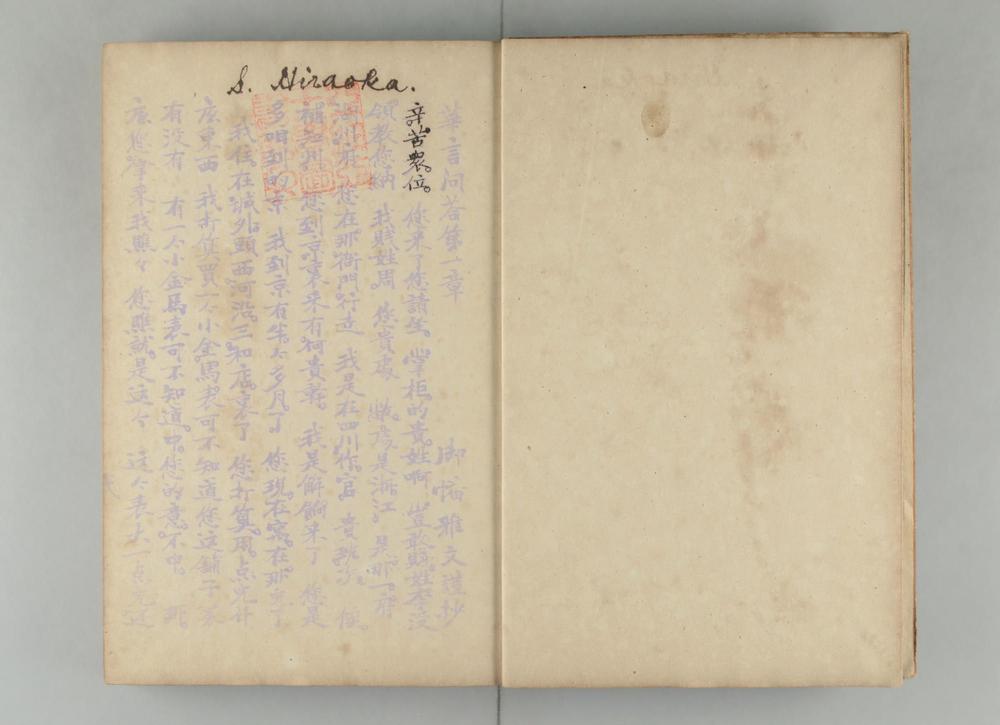 S. Hiraoka.
華言問答第一章
御幡雅文謹抄
辛苦農位。您来了您請坐。掌柜的貴姓啊 豈敢賤姓李没
領教您納 我賤姓周 您貴處 敝處是浙江 是那一府
湖州府 您在那衙門行走 我是在四川作官 貴班次 候
補知州 您到京裏来有何貴幹 我是解餉来了 您是
多咱到的京 我到京有半个多月了 您現在寓在那兒了
我住在城外頭西河沿三和店裏了 您打算用点兒什
庅東西 我打算買一个小金馬表可不知道您這鋪子裏
有没有 有一个小金馬表可不知道中您的意不中 那
庅您拿来我瞧々 您瞧就是這个 這个表大一点兒還